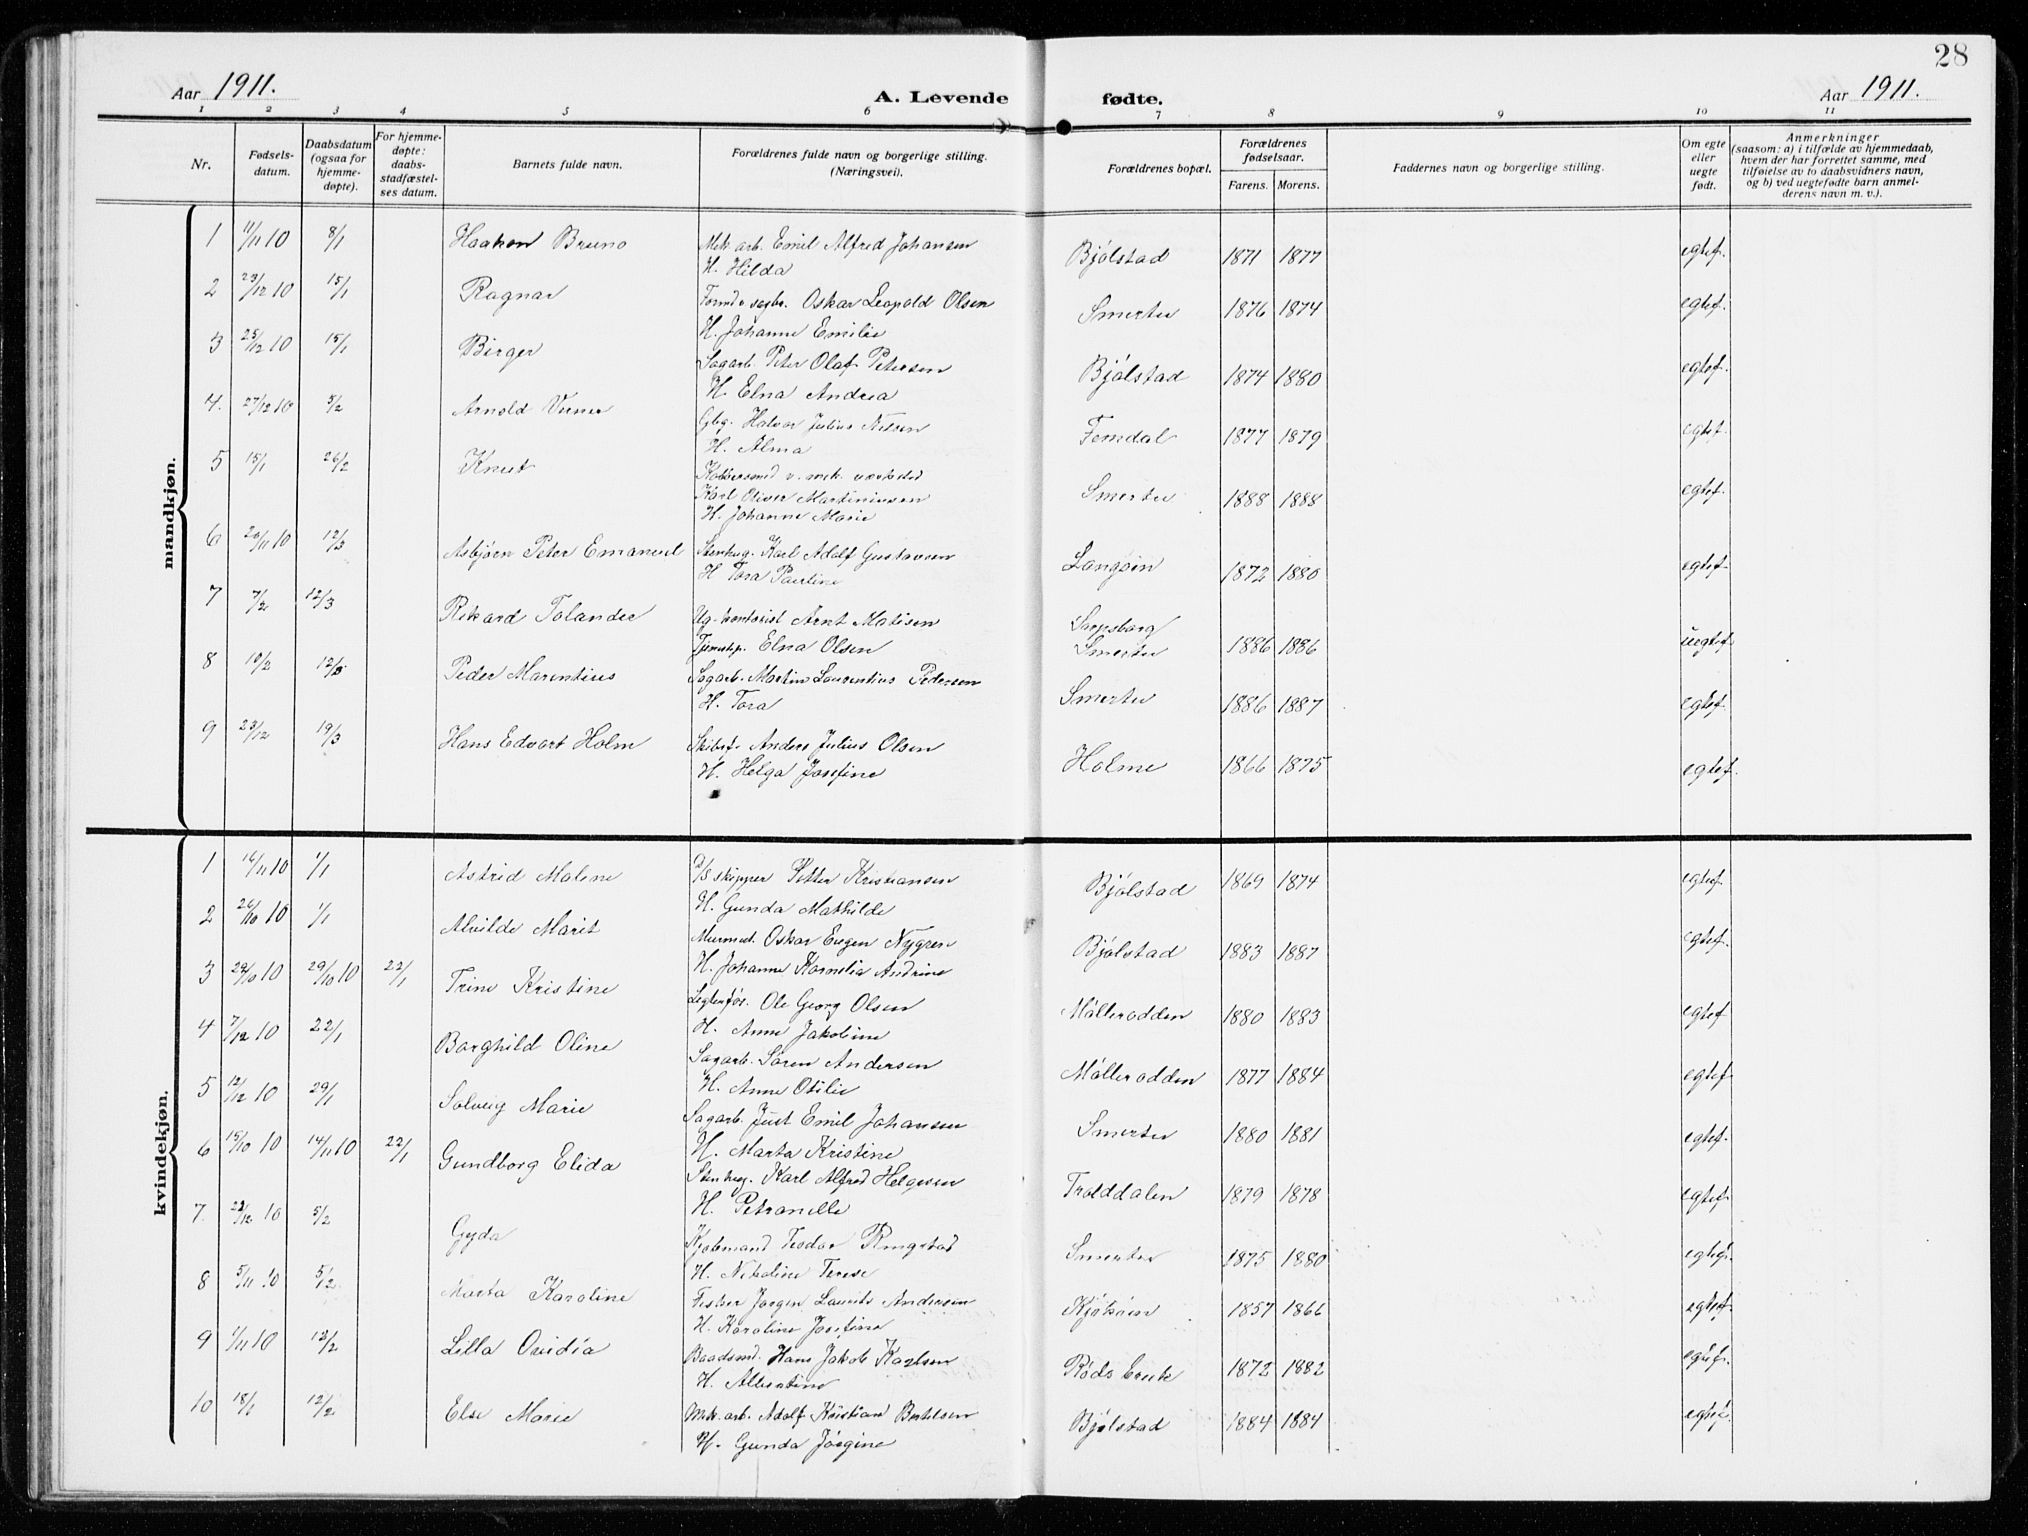 28
Aar 1911. A. Levende fødte. Aar 1911.
1 2 3 4 5 6 7 8 9 10 11
Nr. Fødsels-datum. Daabsdatum (ogsaa for hjemme-døpte). For hjemme-døpte: daabs-stadfæstel-ses datum. Barnets fulde navn. Forældrenes fulde navn og borgerlige stilling. (Næringsvei). Forældrenes bopæl. Forældrenes fødselsaar. Farens. Morens. Faddernes navn og borgerlige stilling. Om egte eller uegte født. Anmerkninger (saasom: a) i tilfælde av hjemmedaab, hvem der har forrettet samme, med tilføielse av to daabsvidners navn, og b) ved uegtefødte barn anmel-derens navn m. v.).
mandkjøn.
1 11/11 10 8/1 Haakon Bruno Mek. arb. Emil Alfred Johansen Bjølstad 1871 1877 egtef.
H. Hilda
2 23/12 10 15/1 Ragnar Oskar Leopold Olsen Smertu 1876 1874 egtef.
H. Johanne Emilie
3 25/12 10 15/1 Birger Sagarb. Peter Olaf Petersen Bjølstad 1874 1880 egtef.
H. Elna Andrea
4. 27/12 10 5/2 Arnold Verner Gbg. Halvor Julius Nilsen Femdal 1877 1879 egtef.
H. Alma
5 15/1 26/2 Knut Kobbersmed v. mek. værksted
Karl Oliver Martiniusen Smertu 1888 1888 egtef.
H. Johanne Marie
6 20/11 10 12/3 Asbjørn Peter Emanuel Stenhug. Karl Adolf Gustavsen Langøin 1872 1880 egtef.
H. Tora Pauline
7 7/2 12/3 Rikard Tolander Ug. kontorist Arnt Matisen Sarpsborg
Tjenestep. Elna Olsen Smertu 1886 1886 uegtef.
8 10/2 12/3 Peder Marentius Sagarb. Martin Laurentius Pedersen Smertu 1886 1887 egtef.
H. Tora
9 23/12 19/3 Hans Edvart Holm Skibsf. Anders Julius Olsen Holme 1866 1875 egtef.
H. Helga Josefine
kvindekjøn.
1 16/11 10 1/1 Astrid Malene D/S skipper Petter Kristiansen Bjølstad 1869 1874 egtef.
H. Gunda Mathilde
2 26/10 10 1/1 Alvilde Marit Murmest. Oskar Eugen Nygren Bjølstad 1883 1887 egtef.
H. Johanne Kornelia Andrine
3 29/10 10 29/10 10 22/1 Trine Kristine Ole Georg Olsen Møllerodden 1880 1883 egtef
H. Anne Jakobine
4 7/12 10 22/1 Borghild Oline Sagarb. Søren Andersen Møllerodden 1877 1884 egtef
H. Anne Otilie
5 12/12 10 29/1 Solveig Marie Sagarb. Just Emil Johansen Smertu 1880 1881 egtef.
H. Marta Kristine
6 15/10 10 14/11 10 22/1 Gundborg Elida Stenhug. Karl Alfred Helgesen Trolddalen 1879 1878 egtef.
H. Petranelle
7. 22/12 10 5/2 Gyda Teodor Ringstad Smertu 1875 1880 egtef.
H. Nikoline Terese
8 5/11 10 5/2 Marta Karoline Fisker Jørgen Laurits Andersen Kjøkøen 1857 1866 egtef.
H. Karoline Josefine
9 1/11 10 12/2 Lilla Ovidia Baadsmd. Hans Jakob Karlsen Røds bruk 1872 1882 egtef.
H. Albertine
10 18/1 12/2 Else Marie Mek. arb. Adolf Kristian Bertelsen Bjølstad 1884 1884 egtef.
H. Gunda Jørgine